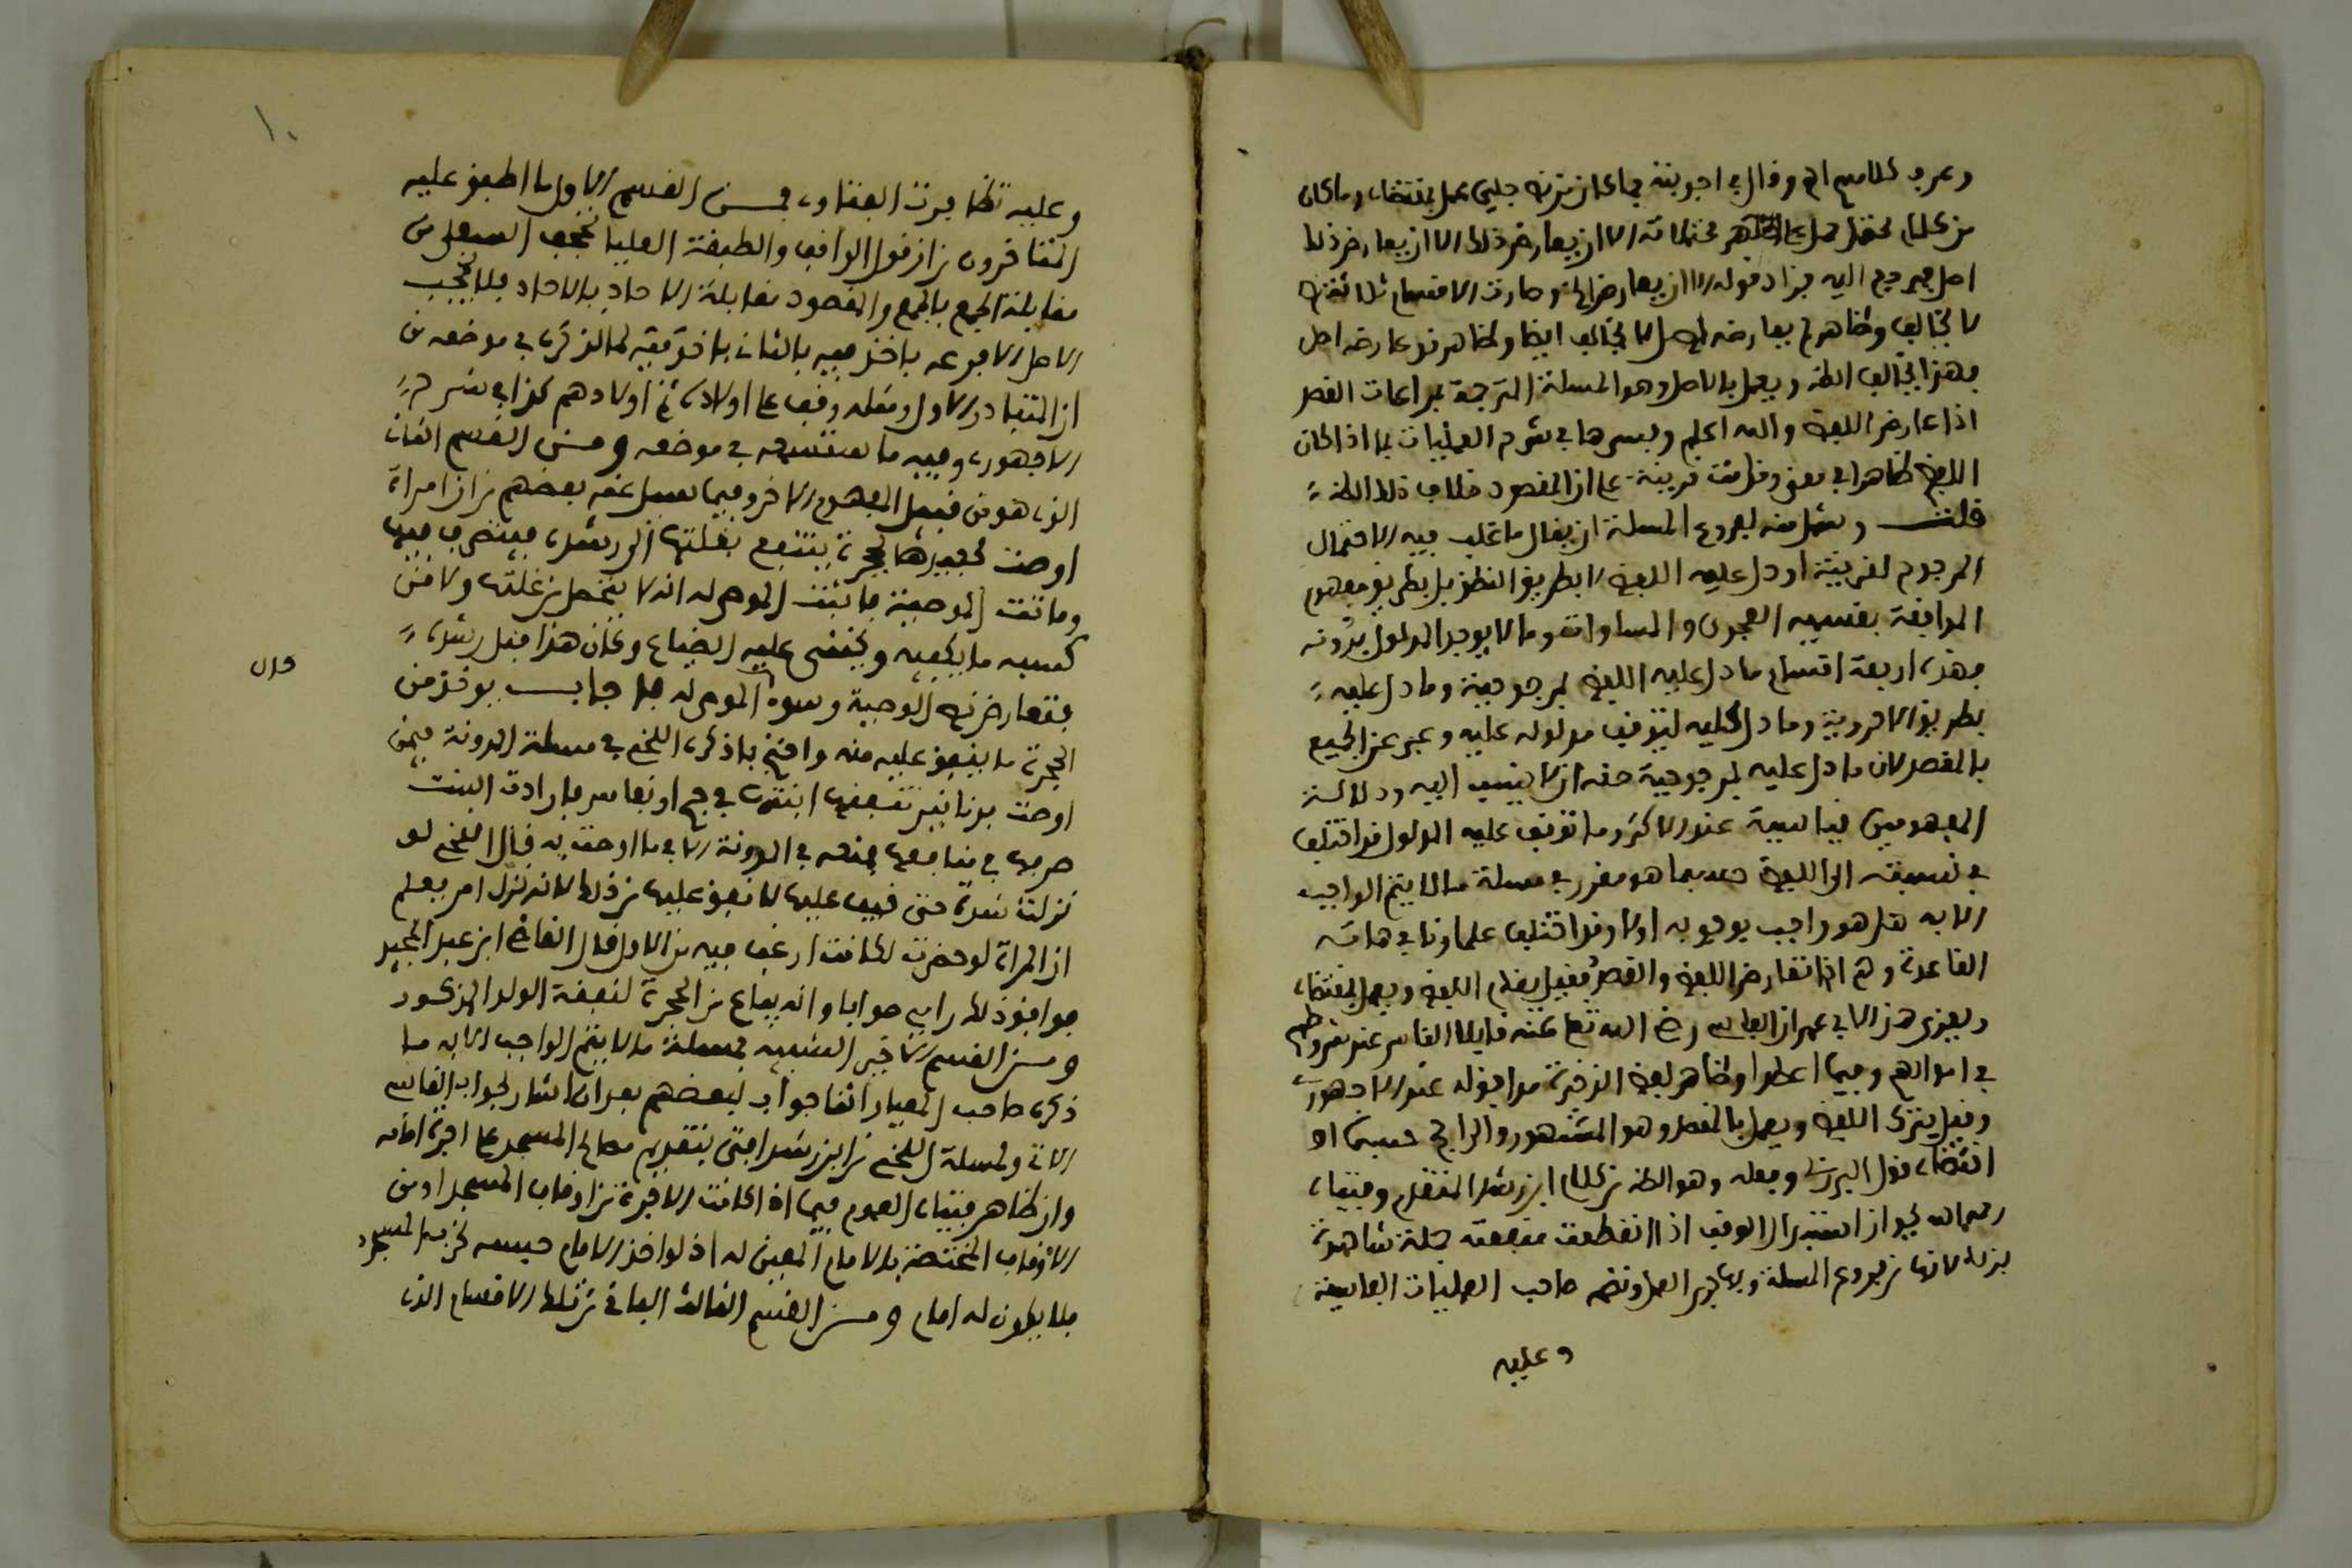 وعرف كلامهم اهـ وقال في اجوبته فما كان من نص جلي عمل بمقتضاه وما كان
من كلام محتمل حمل على اظهر محتملاته الا ان يعارض ذلك الا ان يعارض ذلك
اصل فيرجع اليه فزاد قوله الا ان يعارض الخ وصارت الاقسام ثلاثة نص
لا يخالف وظاهر لم يعارضه اصل لا يخالف ايضا وظاهر قد عارضه اصل
فهذا يخالف الظاهر ويعمل بالاصل وهو المسئلة المترجمة بمراعات القصد
اذا عارض اللفظ والله اعلم وفسرها في شرح العمليات بما اذا كان
اللفظ ظاهرا في معنى وقامت قرينة على ان المقصود خلاف ذلك الظاهر
قلت المسئلة ان يقال ما غلب فيه الاحتمال
المرجوح لقرينة او دل عليه اللفظ لا بطريق النطق بل بطريق مفهوم
الموافقة بقسميه الفحوى والمساواة وما لا يوجد المدلول بدونه
فهذه اربعة اقسام ما دل عليه اللفظ لمرجوحية وما دل عليه
بطريق الاحروية وما دل عليه لتوقف مدلوله عليه وعبر عن الجميع
بالقصد لان ما دل عليه لمرجوحية حقه ان لا ينسب اليه ودلالة
المفهومين قياسية عند الاكثر وما توقف عليه المدلول قد اختلف
في نسبته الى اللفظ حسبما هو مقرر في مسئلة ما لا يتم الواجب
الا به هل هو واجب بوجوبه او لا وقد اختلف علماؤنا في هاته
القاعدة وهي اذا تعارض اللفظ والقصد فقيل يقدم اللفظ ويعمل بمقتضاه
ويعزى هذا لابي عمران الفاسي رضي الله تعالى عنه قايلا الناس عند شروطهم
في اموالهم وفيما اعطوا وظاهر لفظ الذخيرة موافق له عند الاجهوري
وقيل يترك اللفظ ويعمل بالقصد وهو المشهور والراجح حسبما
اقتضاه قول البرزلي وفعله وهو الظاهر من كلام ابن رشد المتقدم وفتياه
رحمه الله بجواز استبدال الوقف اذا انقطعت منفعته جملة شاهدة
بذلك لانها من فروع المسئلة وبه جرى العمل ونصه صاحب العمليات الفاسية
وعليه
١٠
وعليه تظافرت الفتاوى فمن القسم الاول ما اطبق عليه
المتاخرون من ان قول الواقف والطبقة العليا تحجب السفلى من
مقابلة الجمع بالجمع والمقصود مقابلة الاحاد بالاحاد فلا يحجب
الاصل الا فرعه باخذ فيه بالثاني باخريته لما الذكرى في موضعه من
ان المتبادر الاول ومثله وقف على اولادي ثم اولادهم كذا في شرح
الاجهوري وفيه ما ستسمعه في موضعه ومن القسم الثاني
الذي هو من قبيل المفهوم الاخر وفيما سيل عنه بعضهم من ان امراة
اوصت لحفيدها بحجرة ينتفع بغلتها الى رشده فيتصرف فيها
وماتت الموصية فاثبت الموصى له انه لا يتحصل من غلتها ولا من
كسبه ما يكفيه ويخشى عليه الضياع وكان هذا قبل رشده
فتعارض نص الوصية وسوء الموصى له فاجاب يؤخذ من
الحجرة ما ينفق عليه منه واحتج بما ذكره اللخمي في مسئلة المدونة فيمن
اوصت بدنانير تنفقها ابنتها في حج او نفاس فارادت البنت
صرفها في منافعها فمنعه في المدونة الا في ما اوصت به قال اللخمي لو
نزلت شدة حتى خيف عليها لانفق عليها من ذلك لانه نزل امر يعلم
ان المراة لو حضرت لكانت ارغب فيه من الاول قال القاضي ابن عبد المجيد
موافق ذلك رايي صوابا وانه يباع من الحجرة لنفقة الولد المذكور
ومن القسم الاخير الشبيه بمسئلة ما لا يتم الواجب الا به ما
ذكره صاحب المعيار اثناء جواب لبعضهم بعد ان اشار لجواب الفاسي
الاتي ولمسئلة اللخمي من ابن رشد افتى بتقديم مصالح المسجد على اجرة امامه
وان ظاهر فتياه العموم فيما اذا كانت الاجرة من اوقاف المسجد او من
الاوقاف المختصة بالامام المعين له اذ لو اخذ الامام حبسه لخرب المسجد
فلا يكون له امام ومن القسم الثالث الباقي من تلك الاقسام الذي